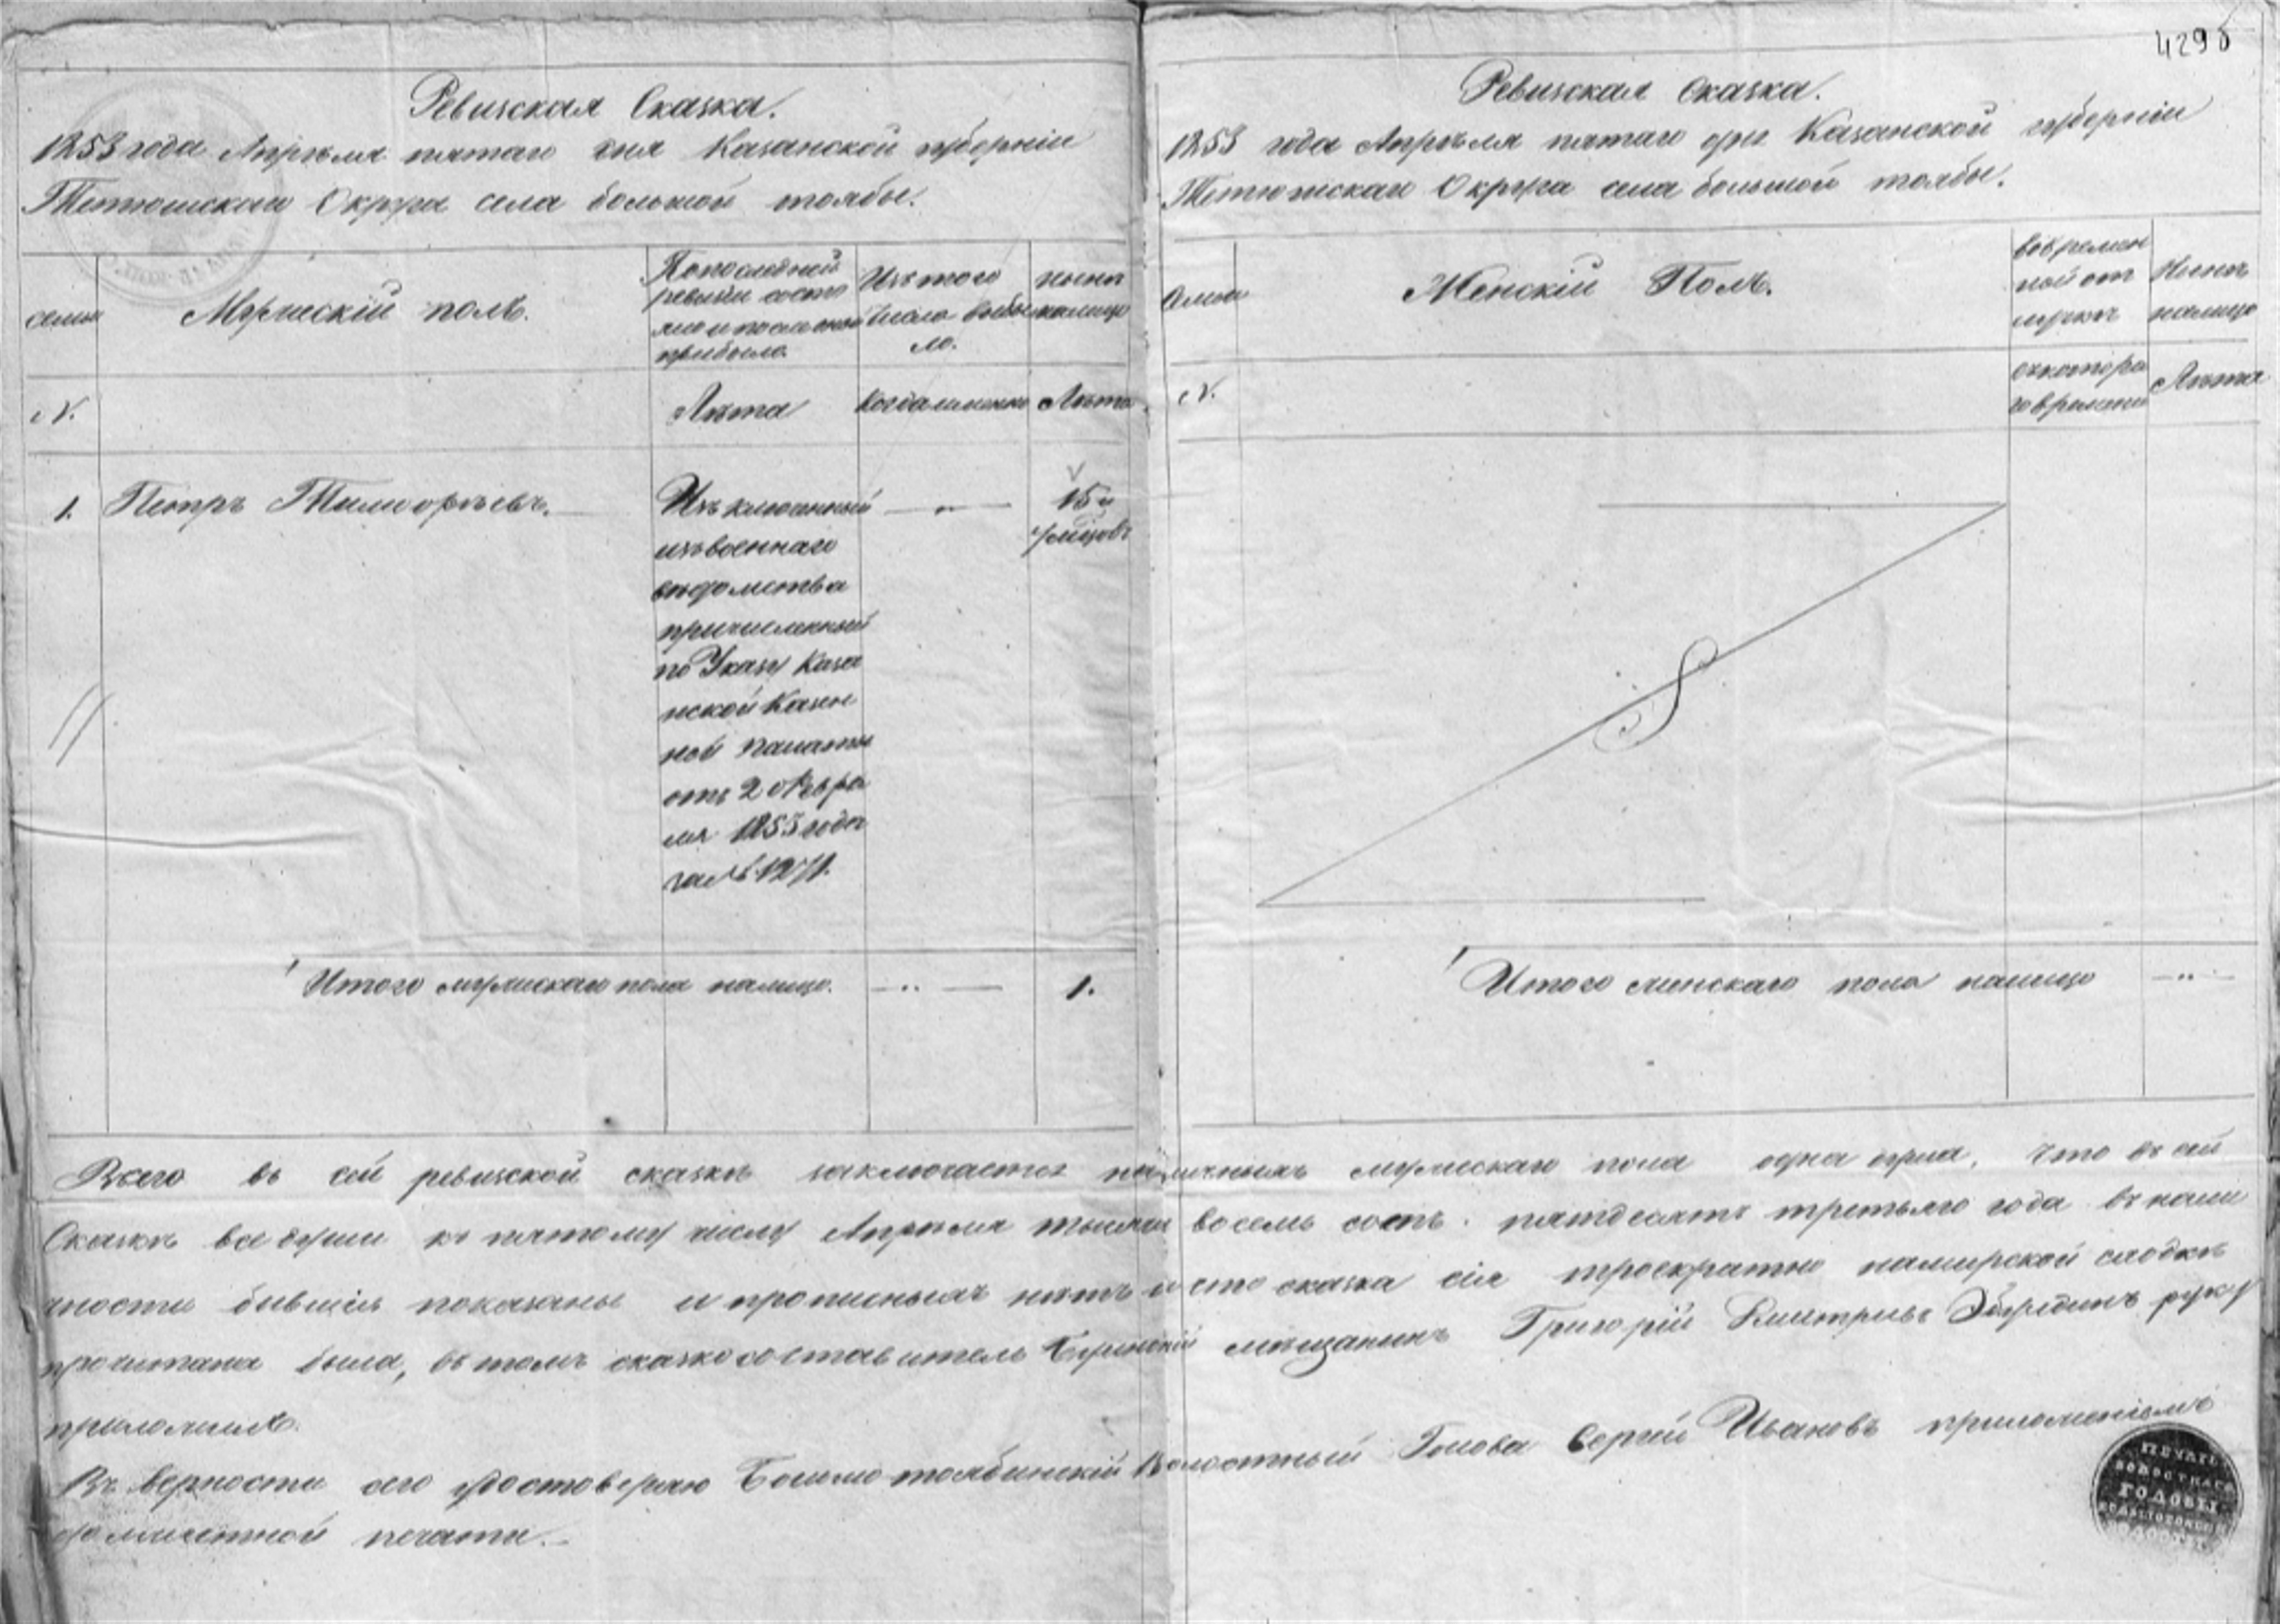 429 б
Ревизская Сказка.
1853 года Апрѣля пятаго дня Казанской губерніи
Тетюшскаго Округа села большой тоябы.
семьи
Мужескій полъ.
По последней
ревизіи состо
яло и после оной
прибыло.
Изъ того
числа выбы
ло.
ныне
налицо
N.
Лѣта
Когда именно
Лѣта
1. Петръ Тимофѣевъ.
Изъключенный
изъ военнаго
вѣдомства
причисленный
по Указу Каза
нской Казен
ной Палаты
отъ 2 Февра
ля 1853 года
за № 1271.
15 и
Итого мужескаго пола налицо.
1.
Ревизская Сказка.
1853 года Апрѣля пятаго дня Казанской губерніи
Тетюшскаго Округа села большой тоябы.
Семьи
Женскій Полъ.
во времен
ной от
лучкѣ
Нынѣ
налицо
N.
съ котора
го времени
Лѣта
Итого женскаго пола налицо
Всего въ сей ревизской сказкѣ заключается наличныхъ мужескаго пола одна душа, что въ сей
Сказкѣ все души къ пятому числу Апрѣля тысяча восемь сотъ пятдесятъ третьяго года въ нали
чности бывшія показаны и прописныхъ нѣтъ и что сказка сія троекратно на мирской сходкѣ
прочитана была, въ томъ сказкосоставитель мѣщанинъ Григорій Дмитріевъ руку
приложилъ.
Въ верности сего удостоверяю Больше тоябинскій Волостный Голова Сергей Ивановъ приложеніемъ
должностной печати.
ПЕЧАТЬ
ГОЛОВЫ